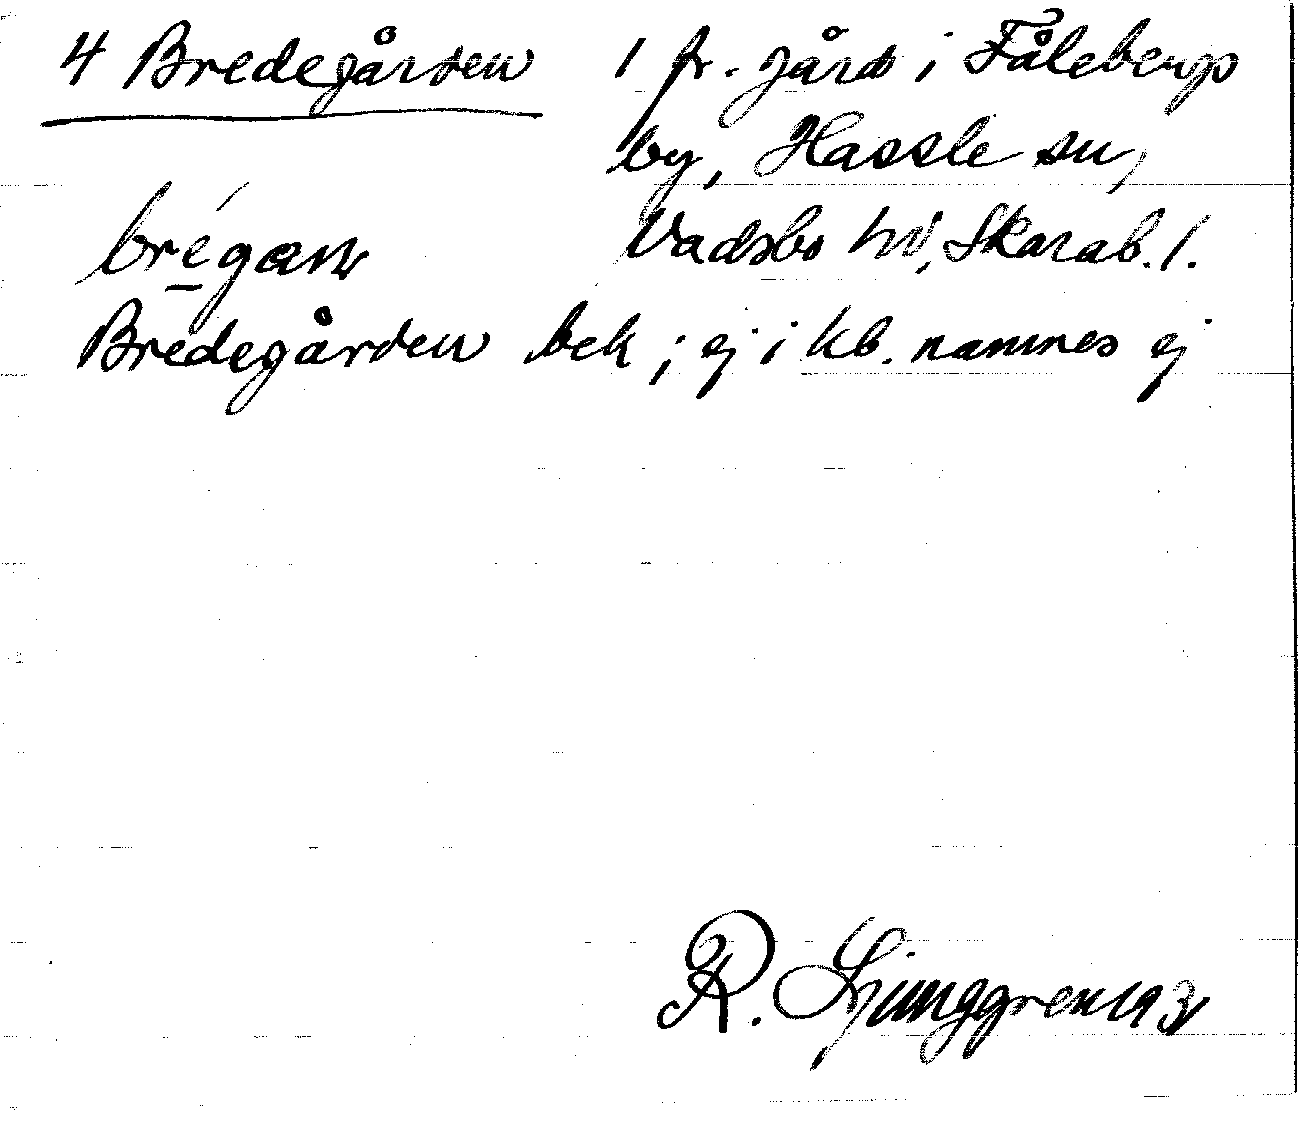 4 Bredegården 1 fr. gård i Fålebergs
by, Hassle sn,
Vadsbo hd, Skarab. l.
brégaɳ
Bredegården bek; ej i kb. namnes ej
R. Ljunggren 193